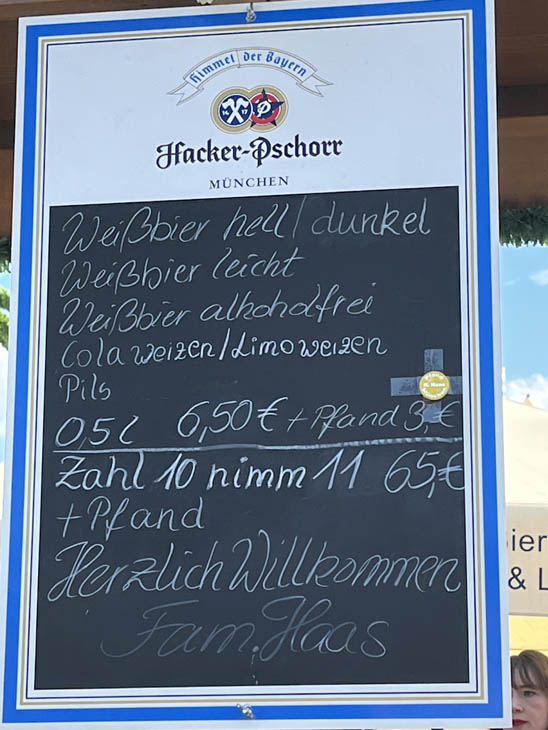 Himmel der Bayern
Hacker-Pschorr
MÜNCHEN
Weißbier hell/dunkel
Weißbier leicht
Weißbier alkoholfrei
Colaweizen/Limoweizen
Pils
0,5 l 6,50 € + Pfand 3,-€
Zahl 10 nimm 11 65,-€
+ Pfand
Herzlich Willkommen
Fam. Haas
ier
& L